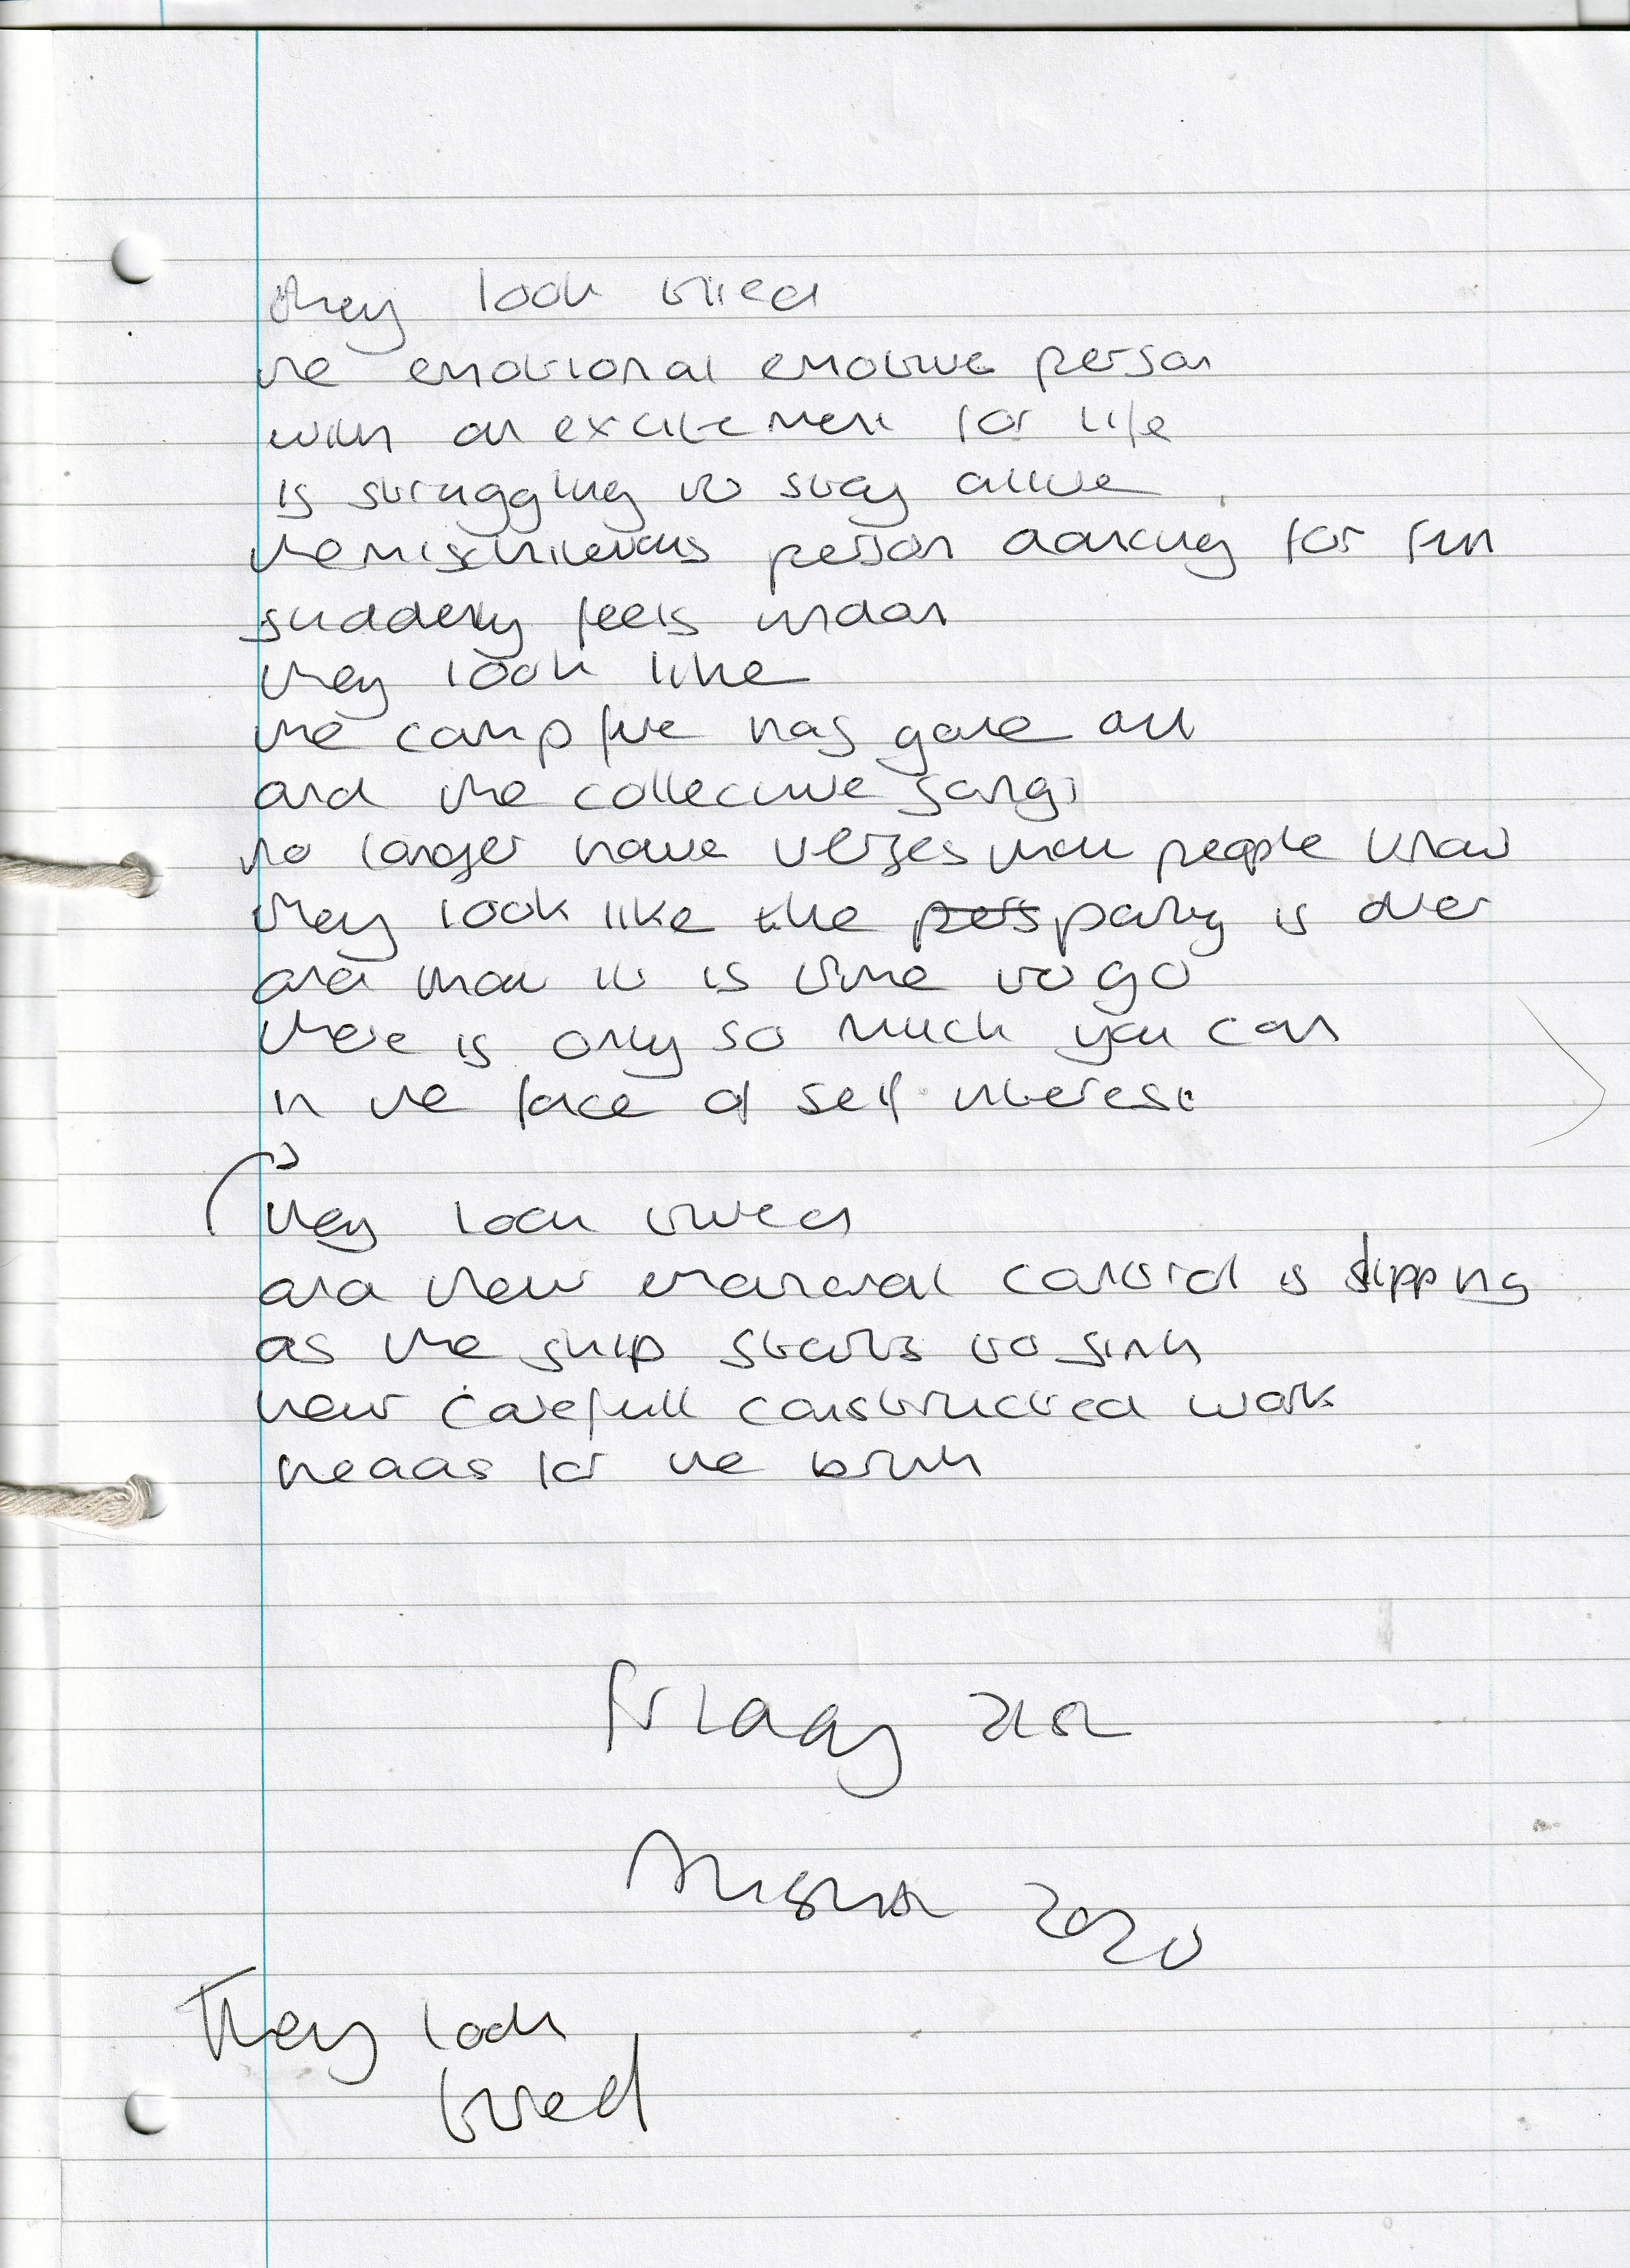 they look tired
the emotional emotive person
with an excitement for life
is struggling to stay alive
the mischievous person dancing for fun
suddenly feels undone
they look like
the camp fire has gone out
and the collective songs
no longer have verses that people know
they look like the pers party is over
and that it is time to go
there is only so much you can
in the face of self interest
they look tired
and their emotional control is slipping
as the ship starts to sink
their carefull constructed work
heads for the brink
friday 21st
August 2020
They look
tired